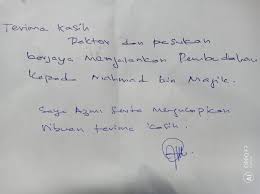 Terima Kasih
Doktor dan pasukan
berjaya menjalankan Pembedahan
kepada Mahmad bin Majik.
Saya Azmi Serta mengucapkan
ribuan terima kasih.